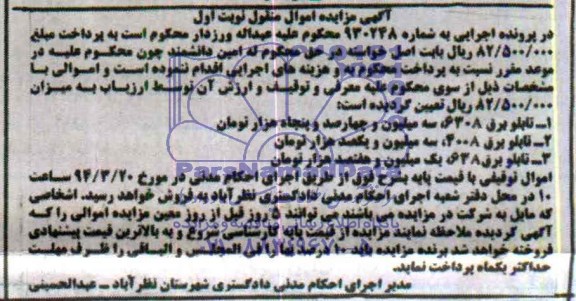 آگهی مزایده اموال منقول نوبت اول
در پرونده اجرایی به شماره ۹۳۰۲۴۸ محکوم علیه عبداله ورزدار محکوم است به پرداخت مبلغ
۸۲/۵۰۰/۰۰۰ ریال بابت اصل خواسته در حق محکوم له امین دانشمند چون محکوم علیه در
موعد مقرر نسبت به پرداخت محکوم به و هزینه های اجرایی اقدام ننموده است و اموالی با
مشخصات ذیل از سوی محکوم علیه معرفی و توقیف و ارزش آن توسط ارزیاب به میزان
۸۲/۵۰۰/۰۰۰ ریال تعیین گردیده است:
۱ـ تابلو برق ۶۳۰۸، سه میلیون و چهارصد و پنجاه هزار تومان
۲ـ تابلو برق ۴۰۰۸، سه میلیون و یکصد هزار تومان
۳ـ تابلو برق ۶۳۸، یک میلیون و هفتصد هزار تومان
اموال توقیفی با قیمت پایه بشرح فوق از طریق اجرای احکام مدنی در مورخ ۹۴/۳/۲۰ ساعت
۱۰ در محل دفتر شعبه اجرای احکام مدنی دادگستری نظرآباد به فروش خواهد رسید. اشخاصی
که مایل به شرکت در مزایده می باشند می توانند ۵ روز قبل از روز معین مزایده اموالی را که
آگهی گردیده ملاحظه نمایند مزایده از قیمت پایه کارشناسی شروع و به بالاترین قیمت پیشنهادی
فروخته خواهد شد برنده مزایده باید ۱۰ درصد بها را فی المجلس و الباقی را ظرف مهلت
حداکثر یکماه پرداخت نماید.
مدیر اجرای احکام مدنی دادگستری شهرستان نظرآباد ـ عبدالحسینی
ParsNamadData